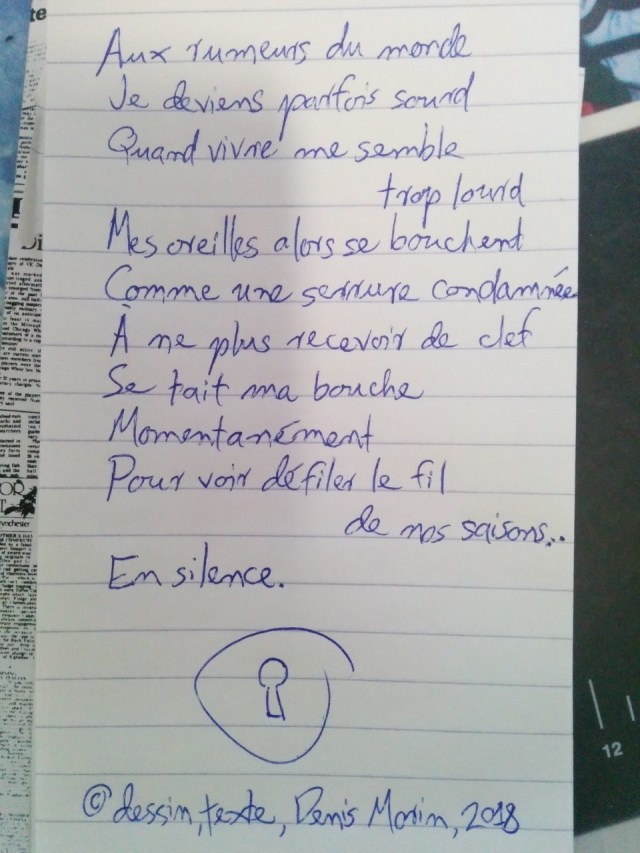 Aux rumeurs du monde
Je deviens parfois sourd
Quand vivre me semble
trop lourd
Mes oreilles alors se bouchent
Comme une serrure condamnée
À ne plus recevoir de clef
Se tait ma bouche
Momentanément
Pour voir défiler le fil
de nos saisons...
En silence.
© dessin, texte, Denis Morin, 2018
12